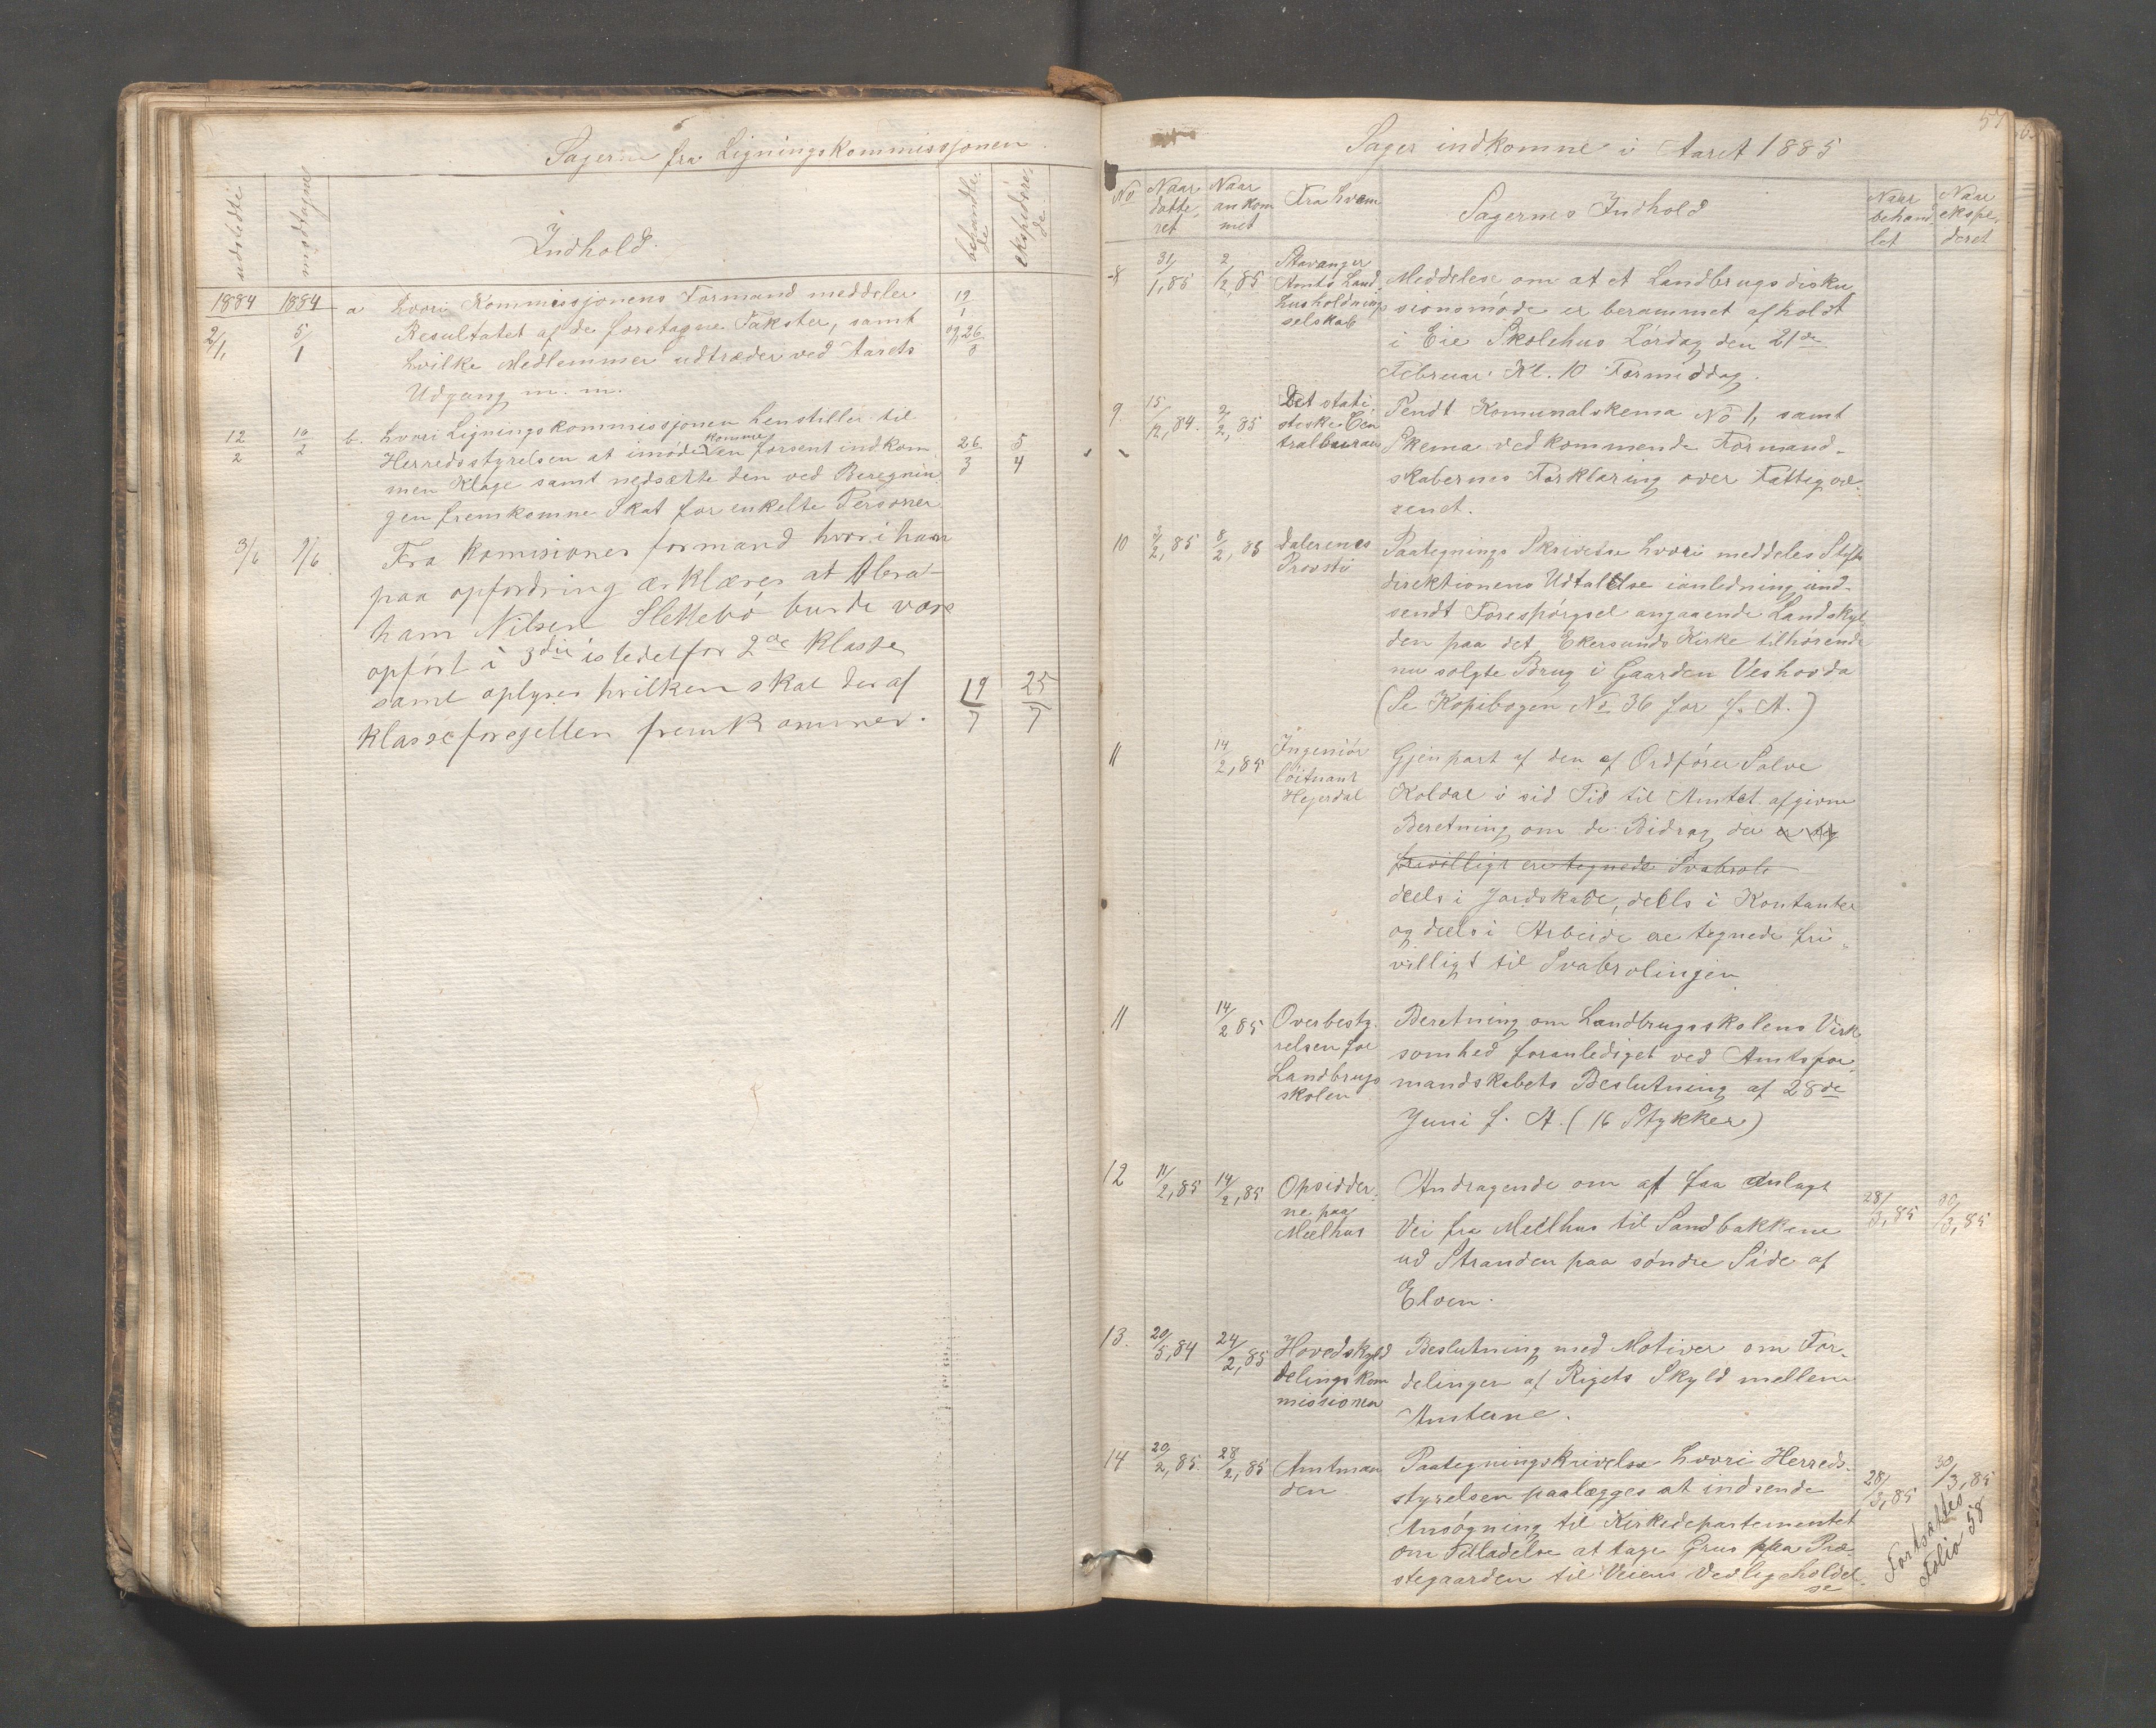 Sagerne fra Ligningskommissjonen.
udstedte
modtagne
Indhold.
behandlede
ekspederede
1884 1884 a hvori Kommissjonens Formand meddeler 19/1
2/1 5/1 Resultatet af de foretagne Takster, samt og 26/3
hvilke Medlemmer udtræder ved Aarets
Udgang m. m.
12/2 16/2 b. hvori Ligningskommissjonen henstiller til
Herredsstyrelsen at imødekomme en forsent indkom 26/3 5/4
men Klage samt nedsætte den ved Beregnin
gen fremkomne Skat for enkelte Personer
3/6 9/6 Fra komisiones formand hvori han
paa opfordring ærklærer at Abra-
ham Nilsen Slettebö burde være
opfört i 3die istedetfor 2de klasse
samt oplyser hvilken skat der af
klasseforsjellen fremkommer. 19/7 25/7
57
Sager indkomne i Aaret 1885
No Naar datte, ret Naar ankom met Fra hvem Sagernes Indhold Naar behand let Naar ekspe, deret
8 31/1, 85 2/2, 85 Stavanger
Amts Land, Meddelese om at et Landbrugsdisku
husholdnings sionsmøde er berammet afholdt
selskab i Eie Skolehus Lørdag den 21de
Februar Kl. 10 Formiddag.
9 15/12, 84. 2/2, 85 Det stati, Sendt Komunalskema No 1, samt
stiske Cen Skema vedkommende Formand-
tralbureau skabernes Forklaring over Fattigvæ-
senet.
10 3/2, 85 8/2, 85 Dalerenes Paategnings Skrivelse hvori meddeles Stifts
Provsti direktionens Udtalelse ianledning ind-
sendt Forespørgsel angaaende Landskyl
den paa det Ekersunds Kirke tilhørende
nu solgte Brug i Gaarden Veshovda
(Se Kopibogen No 36 for f. A.)
11 14/2, 85 Ingeniör Gjenpart af den af Ordfører Salve
löitnant Koldal i sid Tid til Amtet afgivne
Hejerdal Beretning om de Bidrag der er og
frivilligt ere tegnede Svabrole
deels i Jordskade, deels i Kontanter
og deels i Arbeide ere tegnede fri-
villigt til Svabrolingen
11 14/2 85 Overbesty- Beretning om Landbrugsskolens Virk
relsen for somhed foranlediget ved Amtsfor,
Landbrugs mandskabets Beslutning af 28de
skolen Juni f. A. (16 Stykker)
12 11/2, 85 14/2, 85 Opsidder- Andragende om at faa anlagt 28/3, 85 30/3, 85
ne paa Vei fra Meelhus til Sandbakkene
Meelhus ud Stranden paa søndre Side af
Elven.
13. 20/5, 84 24/2, 85 Hovedskyld Beslutning med Motiver om For-
delingskom delingen af Rigets Skyld mellem
missionen Amterne.
14 20/2, 85. 28/2, 85 Amtman Paategningskrivelse hvori Herreds- 28/3, 85 30/3, 85
den styrelsen paalægges at indsende
Ansøgning til Kirkedepartementet
om Tilladelse at tage Grus paa Præ
stegaarden til Veiens Vedligeholdel-
se
Fortsættes
Folio 58